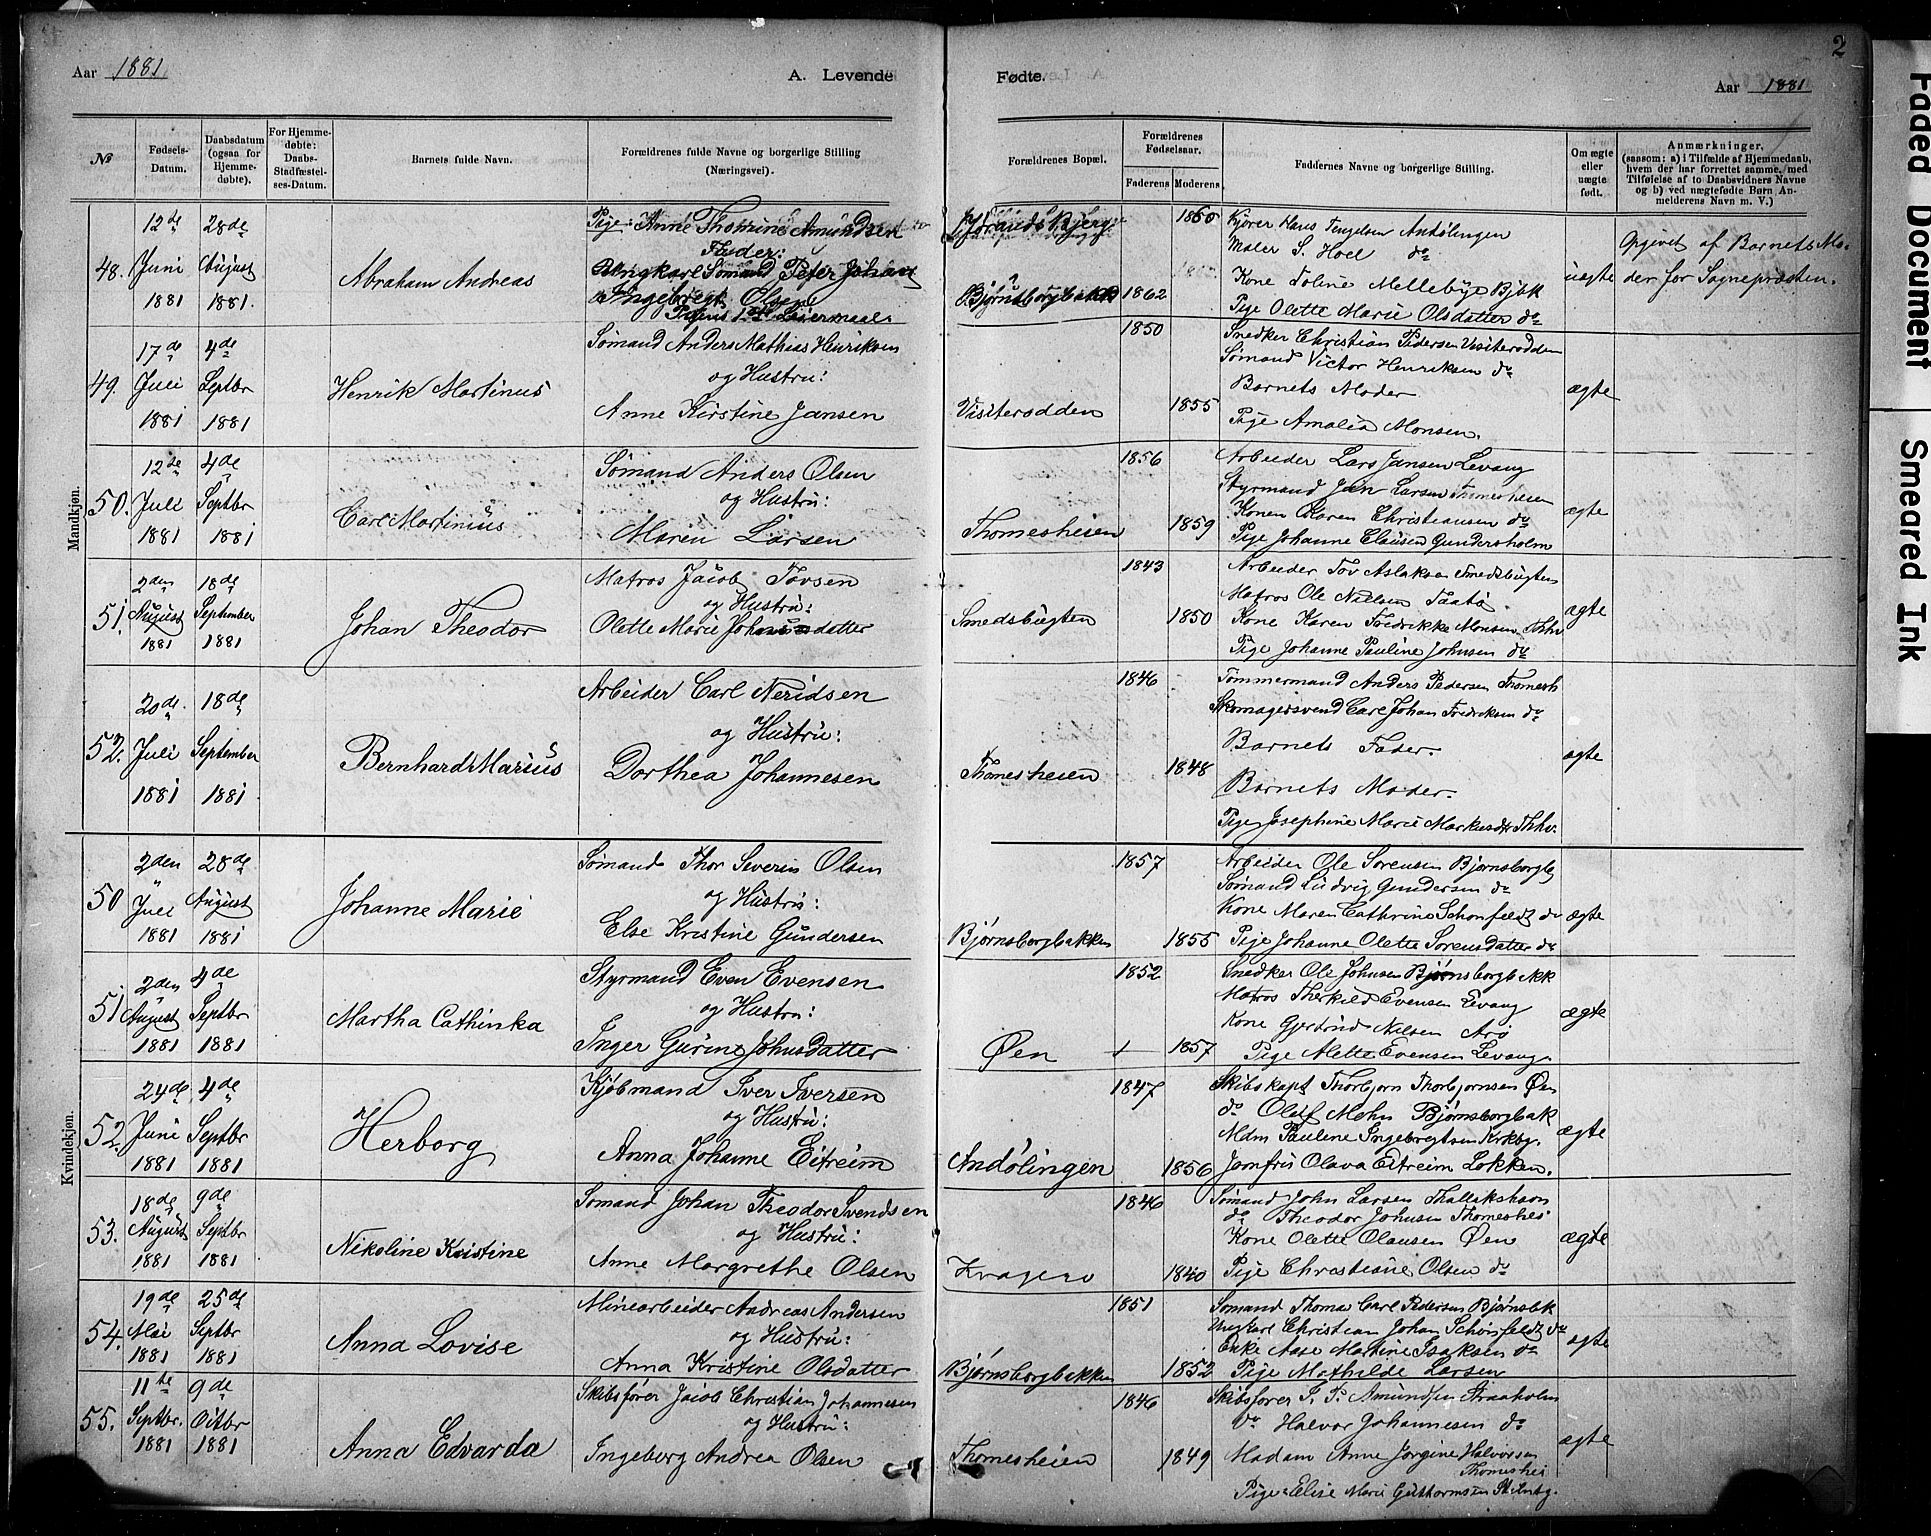 Aar 1881
A. Levende
Fødte.
Aar 1881
2
Faded Document Smeared Ink
№
Fødsels-Datum.
Daabsdatum (ogsaa for Hjemmedøbte).
For Hjemmedøbte: Daabs-Stadfæstelses-Datum.
Barnets fulde Navn.
Forældrenes fulde Navne og borgerlige Stilling (Næringsvei).
Forældrenes Bopæl.
Forældrenes Fødselsaar.
Faderens
Moderens
Faddernes Navne og borgerlige Stilling.
Om ægte eller uægte født.
Anmærkninger.
(saasom: a) i Tilfælde af Hjemmedaab, hvem der har forrettet samme, med Tilføielse af to Daabsvidners Navne og b) ved uægtefødte Børn Anmelderens Navn m. V.)
Mandkjøn.
48.
12te Juni 1881
28de August 1881.
Abraham Andreas
Pige Anne Thorine Amundsen
Fader:
Ungkarl Sømand Peter Johan
Ingebregt Olsen
Pigens 1ste Leiermaal.
Bjørnsborgbakk
1862
1860
Kjører Hans Tengelsen Andølingen
Maler S. Hoel do
Kone Toline Mellebye Bjbk
Pige Olette Marie Olsdatter do
uægte
Opgivet af Barnets Mo-
der for Sognepresten.
49.
17de Juli 1881
4de Septbr 1881
Henrik Martinus
Sømand Anders Mathias Henriksen
og Hustru:
Anne Kirstine Jansen
Visiterodden
1850
1855
Snedker Christian Pedersen Visiterodden
Sømand Victor Henriksen do
Barnets Moder
Pige Amalia Monsen.
ægte
50.
12te Juli 1881
4de Septbr 1881
Carl Martinius
Sømand Anders Olsen
og Hustru:
Maren Larsen
Thomesheien
1856
1859
Arbeider Lars Jansen Levang
Styrmand Jan Larsen Thomesheien
Konen Maren Christiansen do
Pige Johanne Clausen Gundersholm
ægte
51.
2den August 1881
18de September 1881
Johan Theodor
Matros Jacob Tovsen
og Hustru:
Olette Marie Johnsdatter
Smedsbugten
1843
1850
Arbeider Tov Aslaksen Smedsbugten
Matros Ole Nielsen Taatø
Kone Karen Fredrikke Monsen Thhv
Pige Johanne Pauline Johnsen do
ægte
52.
20de Juli 1881
18de September 1881
Bernhard Marius
Arbeider Carl Neridsen
og Hustru:
Dorthea Johannesen
Thomesheien
1846
1848
Tømmermand Anders Pedersen Thomesh
Skomagersvend Carl Johan Fredriksen do
Barnets Fader.
Barnets Moder.
Pige Josephine Marie Markusdtr Thhv.
ægte
Kvindekjøn.
50
2den Juli 1881
28de August 1881
Johanne Marie
Sømand Thor Severin Olsen
og Hustru:
Else Kristine Gundersen
Bjørnsborgbakken
1857
1855
Arbeider Ole Sørensen Bjørnsborgb
Sømand Ludvig Gundersen do
Kone Maren Cathrine Schonfeldt do
Pige Johanne Olette Sorensdatter do
ægte
51
2den August 1881
4de Septbr 1881
Martha Cathinka
Styrmand Even Evensen
og Hustru:
Inger Gurine Johnsdatter
Øen
1852
1857
Snedker Ole Johnsen Bjørnsborgbakk
Matros Therkild Evensen Levang
Kone Gjertrud Nilsen Arø
Pige Mette Evensen Levang.
ægte
52.
24de Juni 1881
4de Septbr 1881
Herborg
Kjøbmand Iver Iversen
og Hustru:
Anna Johanne Eitreim
Andølingen
1847
1856
Skibskapt Thorbjørn Thorbjørnsen Øen
do Oluf Mohn Bjørnsborgbak
Mdm Pauline Ingebregtsen Krkbg.
Jomfru Olava Eitreim Løkken.
ægte
53.
18de August 1881
9de Septbr 1881
Nikoline Kristine
Sømand Johan Theodor Svendsen
og Hustru:
Anne Margrethe Olsen
Kragerø
1846
1840
Sømand John Larsen
do Theodor Johnsen Thomeshei
Kone Olette Olausen Øen
Pige Christiane Olsen do
ægte
54.
19de Mai 1881
25de Septbr 1881
Anna Lovise
Minearbeider Andreas Andersen
og Hustru:
Anna Kristine Olsdatter
Bjørnsborgbakken
1851
1852
Sømand Thoma Carl Pedersen Bjørnsbk
Ungkarl Christian Johan Schønfeldt do
Enke Aase Martine Isaksen do
Pige Mathilde Larsen
ægte
55.
11te Septbr. 1881
9de Octbr 1881
Anna Edvarda
Skibsfører Jacob Christian Johannesen
og Hustru:
Ingeborg Andrea Olsen
Thomesheien
1846
1849
Skibsfører P. P. Amundsen Straaholm
do Halvor Johannesen do
Madam Anne Jørgine Halvorsen
Thomeshei
Pige Elise Marie Guthormsen
ægte